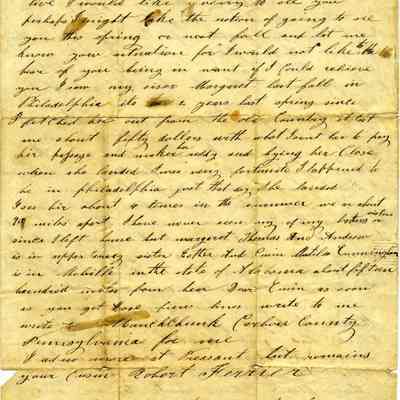 live I would like very to see you
perhaps I might take the notion of going to see
you this spring or next fall and let me
know your situation for I would not like to
hear of you being in want if I could relieve
you I saw my sister Margaret last fall in
Philadelphia its 2 years last spring since
I fetched her out from the old Country it cost
me about fifty dollars with what I sent her to pay
her passage and making her ready and bying her Close
when she landed I was very fortunate I happned to
be in philadelphia just that day she landed
I see her about 4 times in the summer we are about
miles apart I have never seen any of my brothers or sisters
since I left home but margaret Thomas And Anderson
is in upper Canady sister Esther And Cusin Matilda Cunningham
is in Mobille in the state of Alabama about fifteen
hundred miles from hear Dear Cusin as soon
as you get these few lines write to me
write to Mauchchunk Carbon County
Pennsylvania for me
I ad no more at Present but remains
your Cusin Robert Ferrier